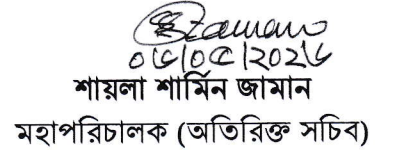 Szamano
০৬/০৫/২০২৬
শায়লা শার্মিন জামান
মহাপরিচালক (অতিরিক্ত সচিব)